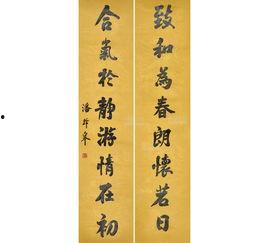 致和為春朗懷若日
合氣於靜游情在初
潘齡皋